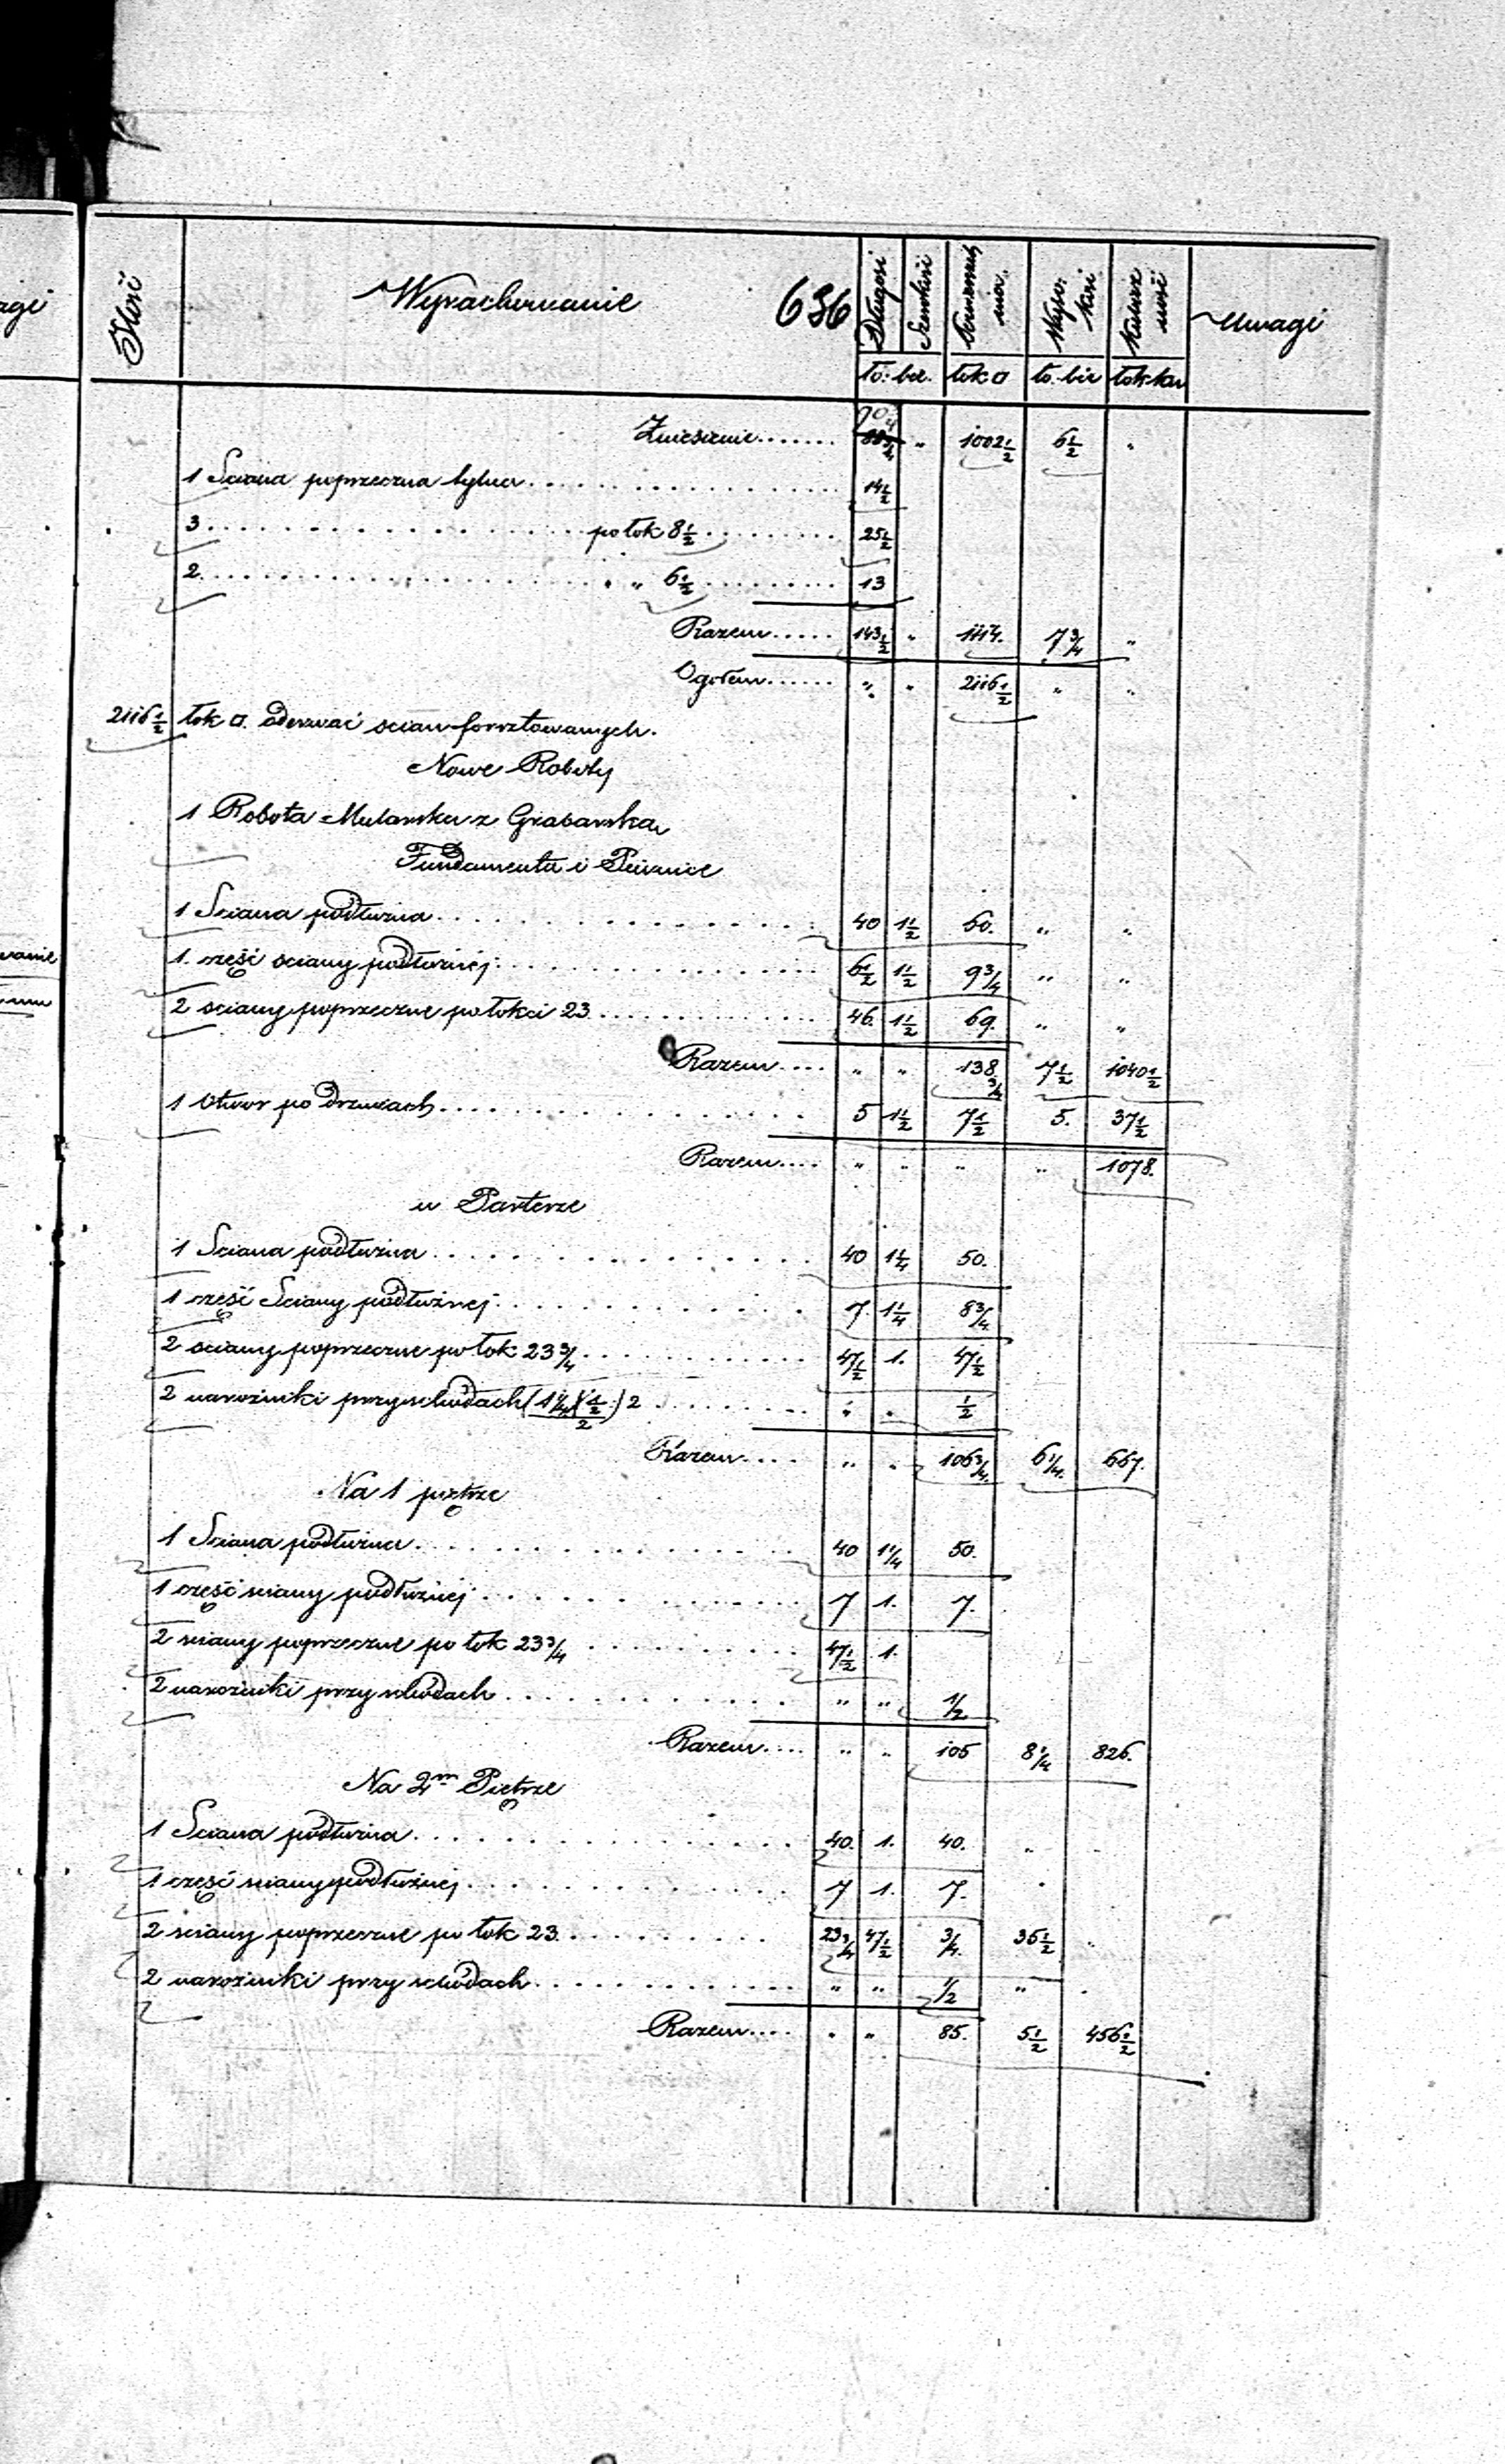 agi
Ilość Wyrachowanie 636 Długość Szerokość Powierzch nia Wyso kość Kubicz ność Uwagi
ło: bie. łok □ ło. bie łok ku
Zniesienie....... 1002½ 6½ "
1 Sciana poprzeczna tylna 14½
3 po łok 8½ 25½
2 " 6½ 13
Razem..... 143½ " 1114. 7¾ "
Ogółem...... " " 2116½ " "
2116½ łok □. oderwać scian forsztowanych.
Nowe Roboty
1 Robota Mularska z Grabarską
Fundamenta i Piwnice
1 Sciana podłużna 40 1½ 60. " "
1. część sciany podłużnej 6½ 1½ 9¾ " "
2 sciany poprzeczne po łokci 23 46. 1½ 69. " "
Razem.... " " 138¾ 7½ 1040½
1 Otwor po drzwiach 5 1½ 7½ 5. 37½
Razem.... " " " " 1078.
w Parterze
1 Sciana podłużna 40 1¼ 50.
1 część Sciany podłużnej 7. 1¼ 8¾
2 sciany poprzeczne po łok 23¾ 47½ 1. 47½
2 narożniki przy schodach 2 " " ½
Razem.... " " 106¾ 6¼ 667.
Na 1 piętrze
1 Sciana podłużna 40 1¼ 50.
1 część sciany podłużnej 7 1. 7.
2 sciany poprzeczne po łok 23¾ 47½ 1.
2 narożniki przy schodach " " ½
Razem.... " " 105 8¼ 826.
Na 2m Piętrze
1 Sciana podłużna 40. 1. 40. " "
1 część sciany podłużnej 7 1. 7. "
2 sciany poprzeczne po łok 23 23¾ 47½ ¾ 36½ "
2 narożniki przy schodach " " ½ " "
Razem.... " " 85. 5½ 456½